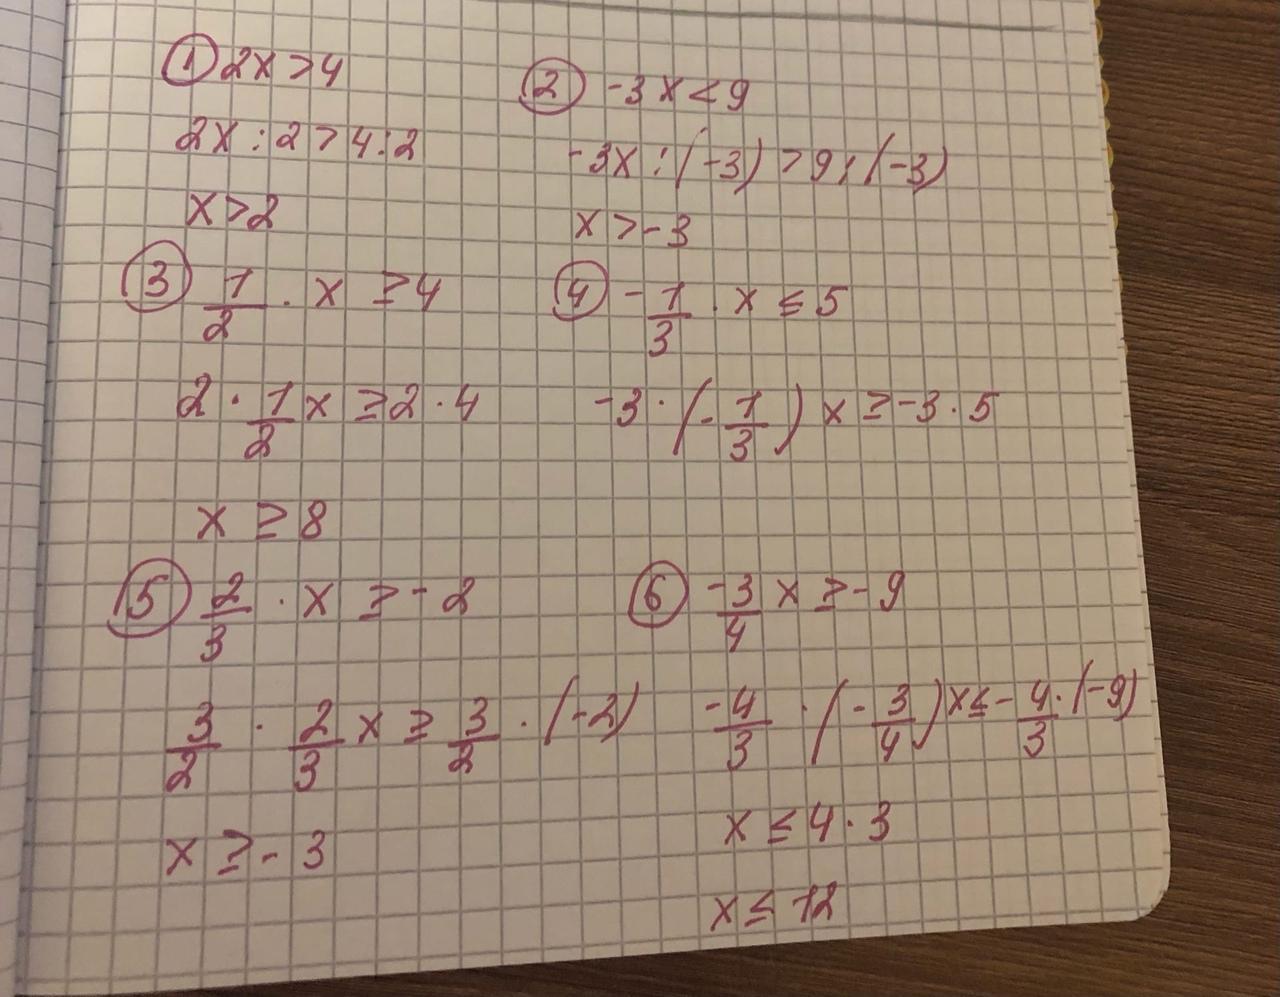 ① 2x > 4
2x : 2 > 4 : 2
x > 2
② -3x < 9
-3x : (-3) > 9 : (-3)
x > -3
③ 1/2 · x ≥ 4
2 · 1/2 x ≥ 2 · 4
x ≥ 8
④ -1/3 · x ≤ 5
-3 · (-1/3) x ≥ -3 · 5
⑤ 2/3 · x ≥ -2
3/2 · 2/3 x ≥ 3/2 · (-2)
x ≥ -3
⑥ -3/4 x ≥ -9
-4/3 · (-3/4) x ≤ -4/3 · (-9)
x ≤ 4 · 3
x ≤ 12